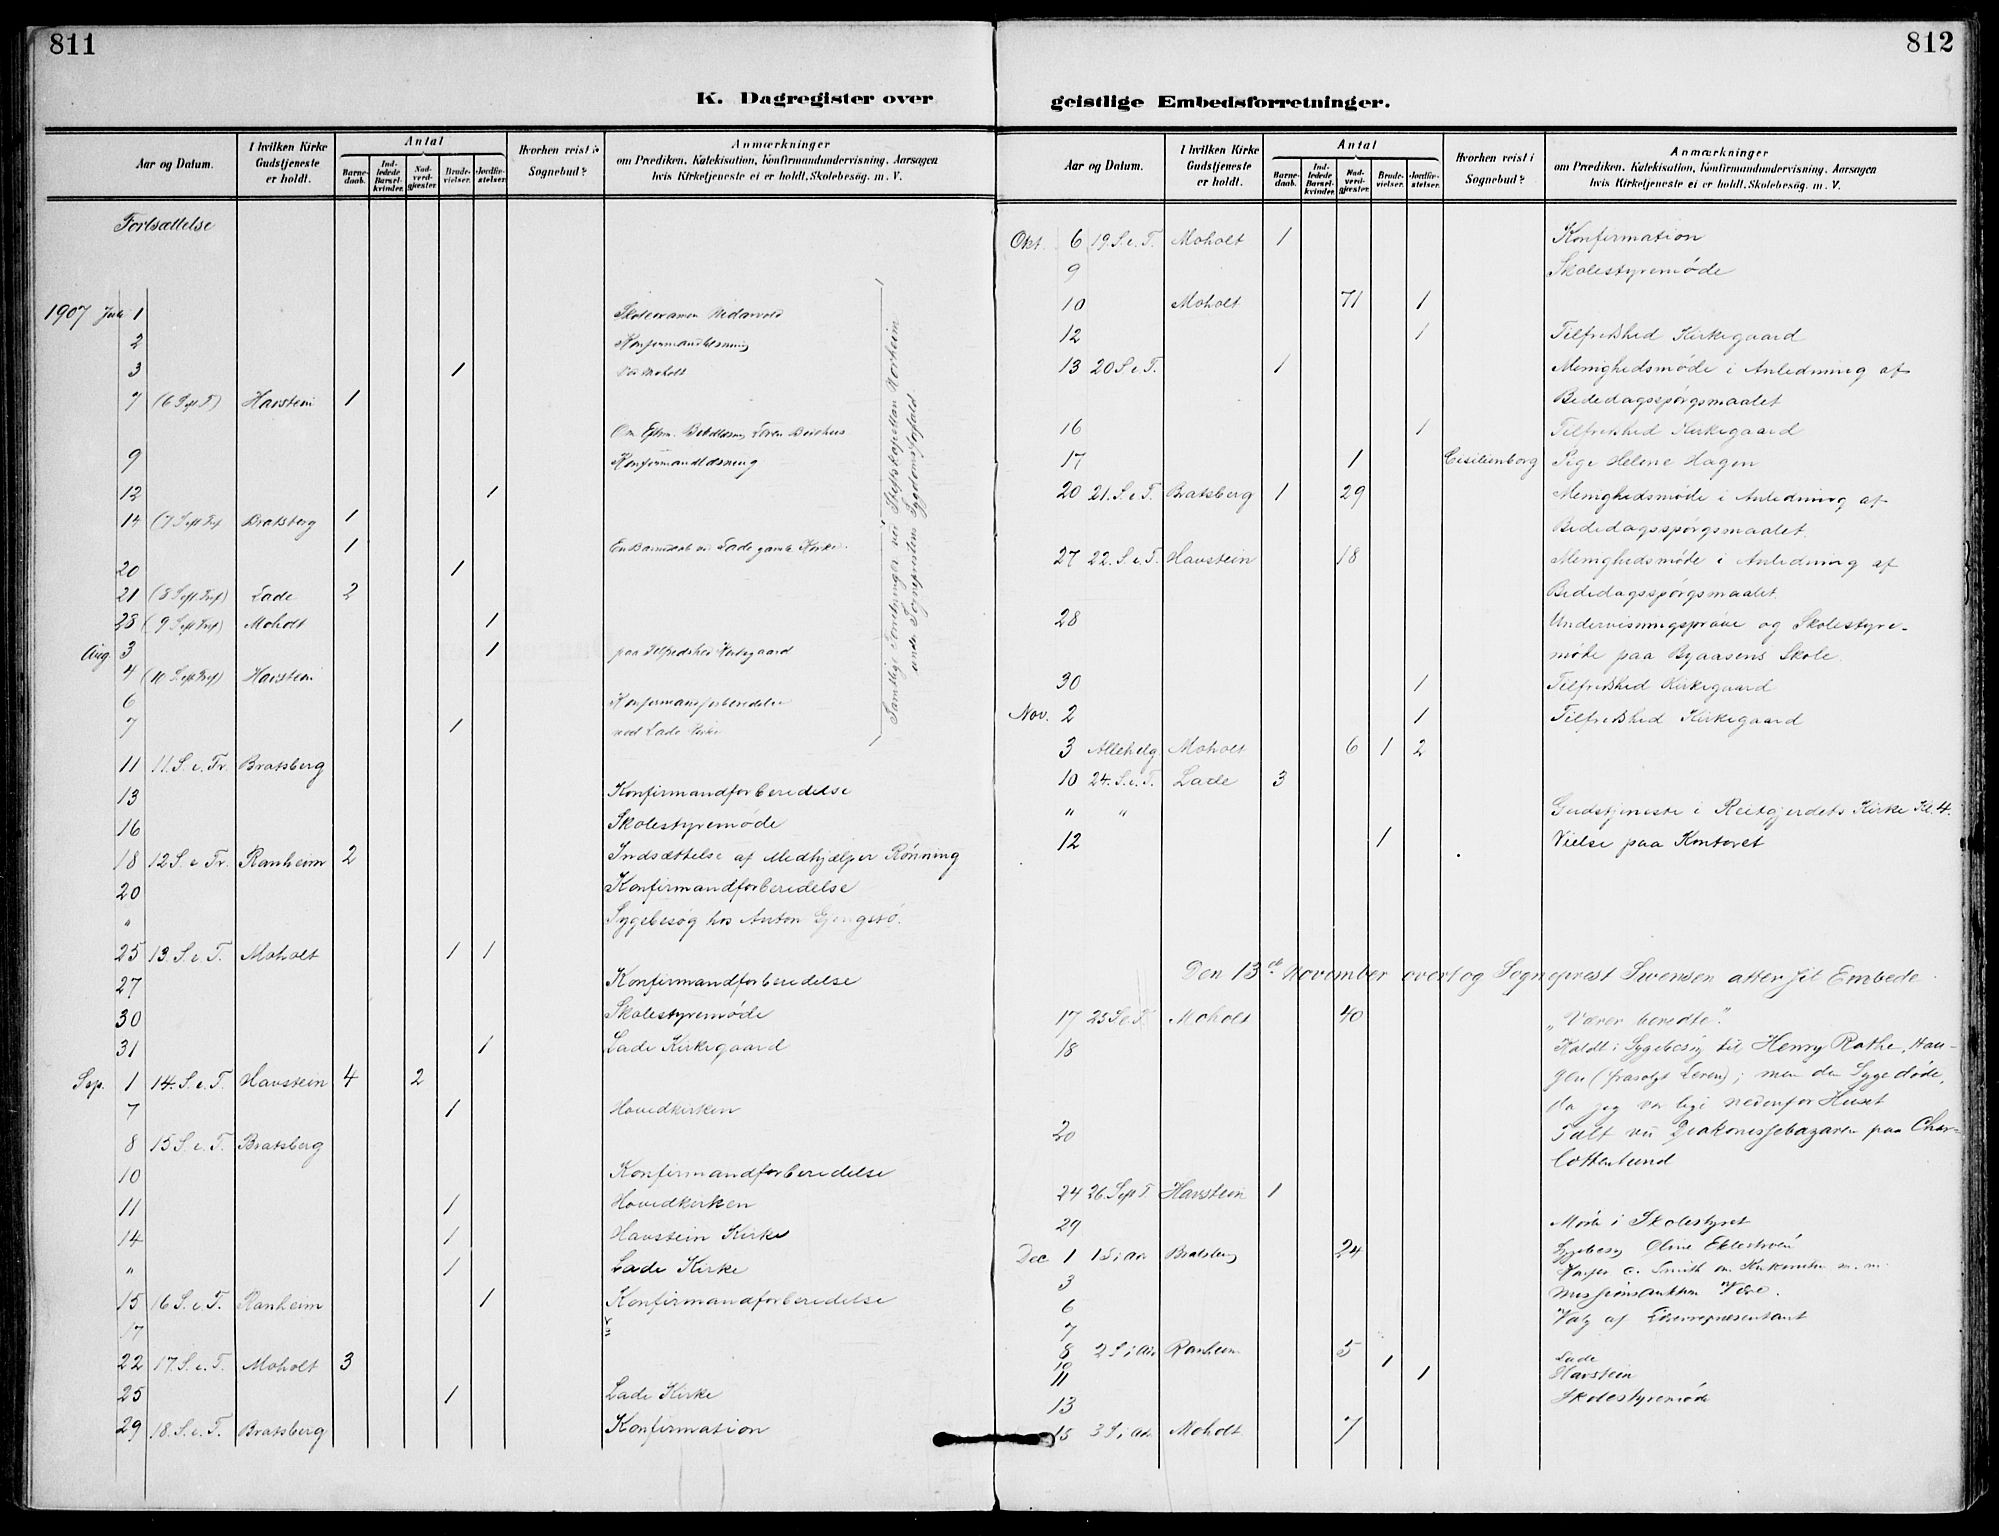 811
K. Dagregister over
Aar og Datum.
I hvilken Kirke Gudstjeneste er holdt.
Antal
Barnedaab.
Indledede Barselkvinder.
Nadverdgjester.
Brudevielser.
Jordfæstelser.
Hvorhen reist i Sognebud?
Anmærkninger
om Prædiken, Katekisation, Konfirmandundervisning, Aarsagen
hvis Kirketjeneste ei er holdt, Skolebesøg. m. V.
Fortsættelse
1907 Juli 1 Skoleexamen
2 Konfirmandlæsning
3 1 Moholt
7 Havstein 1
9 Konfirmandlæsning
12 1
14 Bratsberg 1
1 Lade gamle Kirke.
20 1
21 Lade 2
28 Moholt 1
Aug 3 1 paa
4 Havstein
6 Konfirmandforberedelse
7 1 ved Lade Kirke
Samtlige Forretninger ved Stiftskapellan Norheim
under Sogneprestens Sygdomsforfald
11 11. S. e. Tr. Bratsberg
13 Konfirmandforberedelse
16 Skolestyremøde
18 12 S. e. Tr. Ranheim 2 Indsættelse af Medhjælper Rønning
20 Konfirmandforberedelse
" Sygebesøg hos Anton
25 13. S. e. T. Moholt 1 1
27 Konfirmandforberedelse
30 Skolestyremøde
31 1 Lade Kirkegaard
Sep. 1 14. S. e. T. Havstein 4 2
7 1 Hovedkirken
8 15 S. e. T. Bratsberg
10 Konfirmandforberedelse
11 1 Hovedkirken
14 1 Havstein Kirke
" 1 Lade Kirke
15 16 S. e. T. Ranheim 1 Konfirmandforberedelse
17
22 17. S. e. T. Moholt 3
25 1 Lade Kirke
29 18. S. e. T. Bratsberg Konfirmation
812
geistlige Embedsforretninger.
Aar og Datum.
I hvilken Kirke Gudstjeneste er holdt.
Antal
Barnedaab.
Indledede Barselkvinder.
Nadverdgjester.
Brudevielser.
Jordfæstelser.
Hvorhen reist i Sognebud?
Anmærkninger
om Prædiken, Katekisation, Konfirmandundervisning, Aarsagen
hvis Kirketjeneste ei er holdt, Skolebesøg. m. V.
Okt. 6 19 S. e. T. Moholt 1 Konfirmation
9 Skolestyremøde
10 Moholt 71 1
12 1 Tilfredshed Kirkegaard
13 20 S. e. T. 1 Menighedsmøde i Anledning af
Bededagsspørgsmaalet
16 1 Tilfredshed Kirkegaard
17 1 Cecilienborg Pige Helene Hagen
20 21. S. e. T. Bratsberg 1 29 Menighedsmøde i Anledning af
Bededagsspørgsmaalet.
27 22. S. e. T. Havstein 18 Menighedsmøde i Anledning af
Bededagsspørgsmaalet
28 Undervisningsprøve og Skolestyre-
møde paa Byaasens Skole.
30 1 Tilfredshed Kirkegaard
Nov. 2 1 Tilfredshed Kirkegaard
3 Allehelg Moholt 6 1 2
10 24. S. e. T. Lade 3
" " Gudstjeneste i Reitgjerdets Kirke Kl. 4.
12 1 Vielse paa Kontoret
Den 13de November overtog Sogneprest Svensen atter sit Embede
17 25 S. e. T. Moholt 40 "Værer beredte".
18 Kaldt i Sygebesøg til Henry Rathe, Hau-
gen; men den Syge døde,
da jeg var lige nedenfor Huset
20 Talt ved Diakonissebazaren paa Char-
lottenlund
24 26 Sept T. Havstein 1
29 Møde i Skolestyret
Dec 1 1 S i Adv Bratsberg 24 Sygebesøg Oline
3
6
7 Valg af
8 2 S i Adv Ranheim 5
10 1 Lade
11 1 Havstein
13 Skolestyremøde
15 3 S i Adv Moholt 7